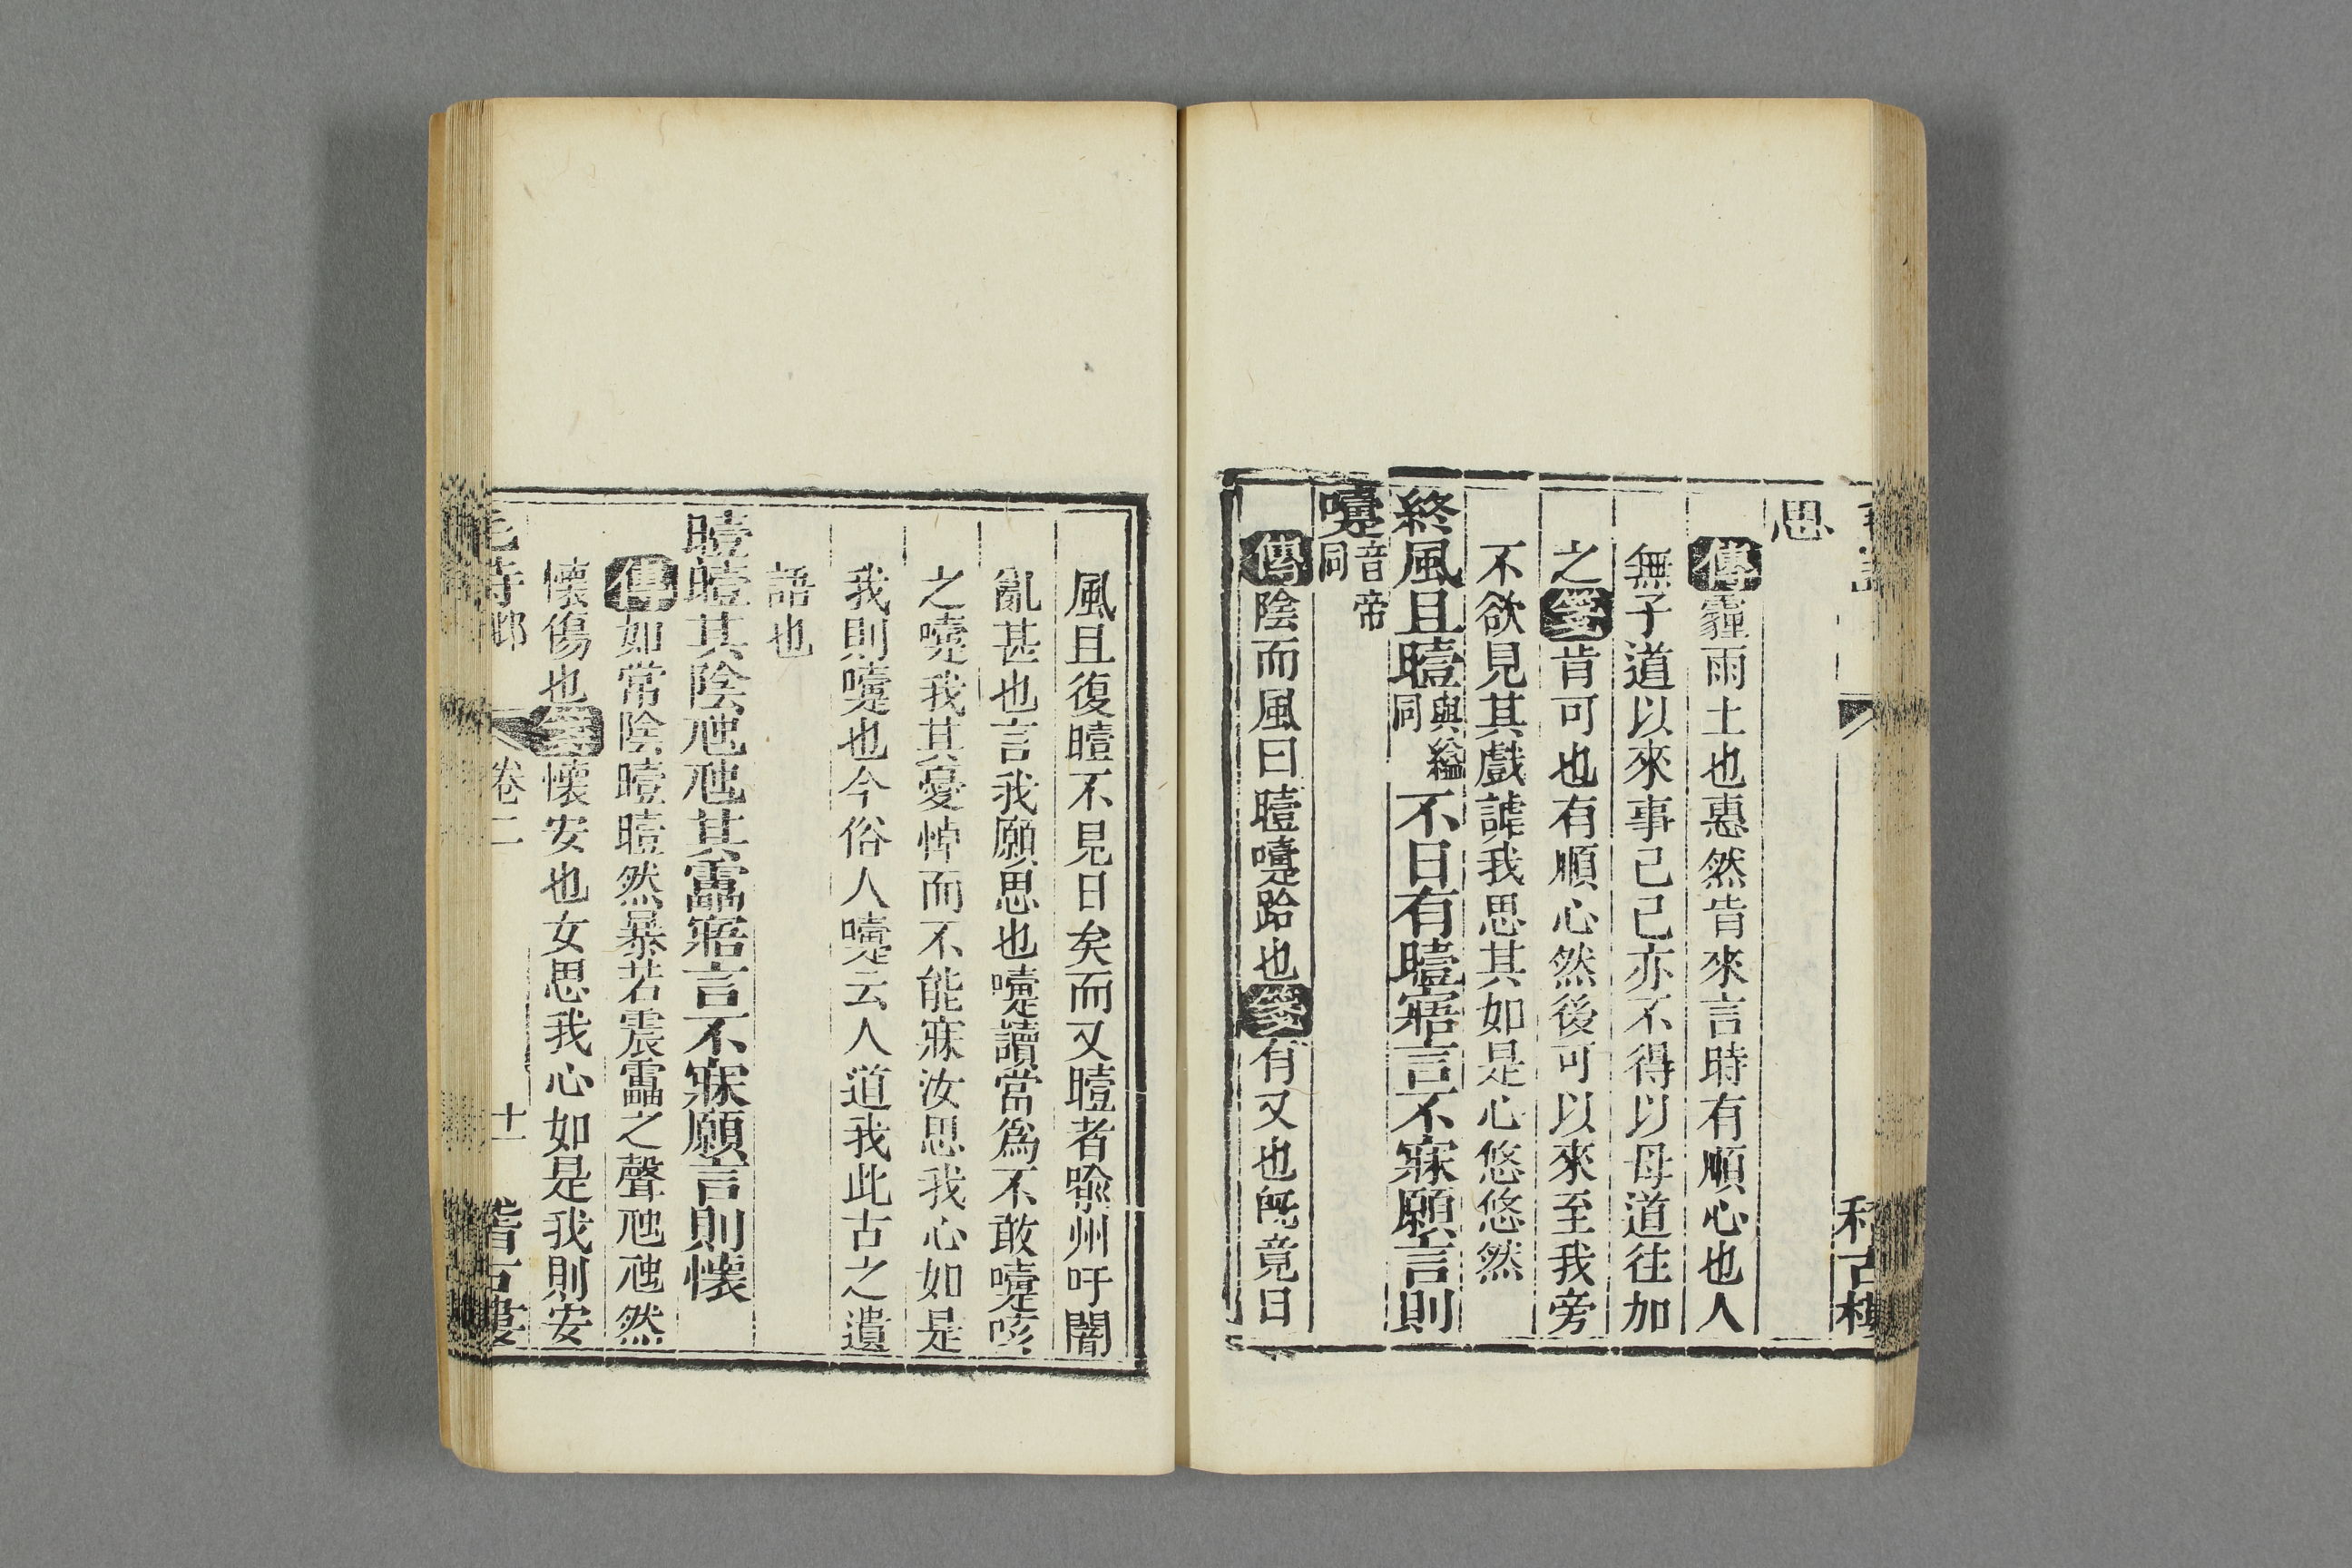 思
傳霾雨土也惠然肯來言時有順心也人
無子道以來事己己亦不得以母道往加
之箋肯可也有順心然後可以來至我旁
不欲見其戲謔我思其如是心悠悠然
終風且曀與緇同不日有曀寤言不寐願言則
嚔音帝同
傳陰而風曰曀嚔跲也箋有又也旣竟日
風且復曀不見日矣而又曀者喻州吁闇
亂甚也言我願思也嚔讀當爲不敢嚔咳
之嚔我其憂悼而不能寐汝思我心如是
我則嚔也今俗人嚔云人道我此古之遺
語也
曀曀其陰虺虺其靁寤言不寐願言則懷
傳如常陰曀曀然暴若震靁之聲虺虺然
懷傷也箋懷安也女思我心如是我則安
卷二 十一